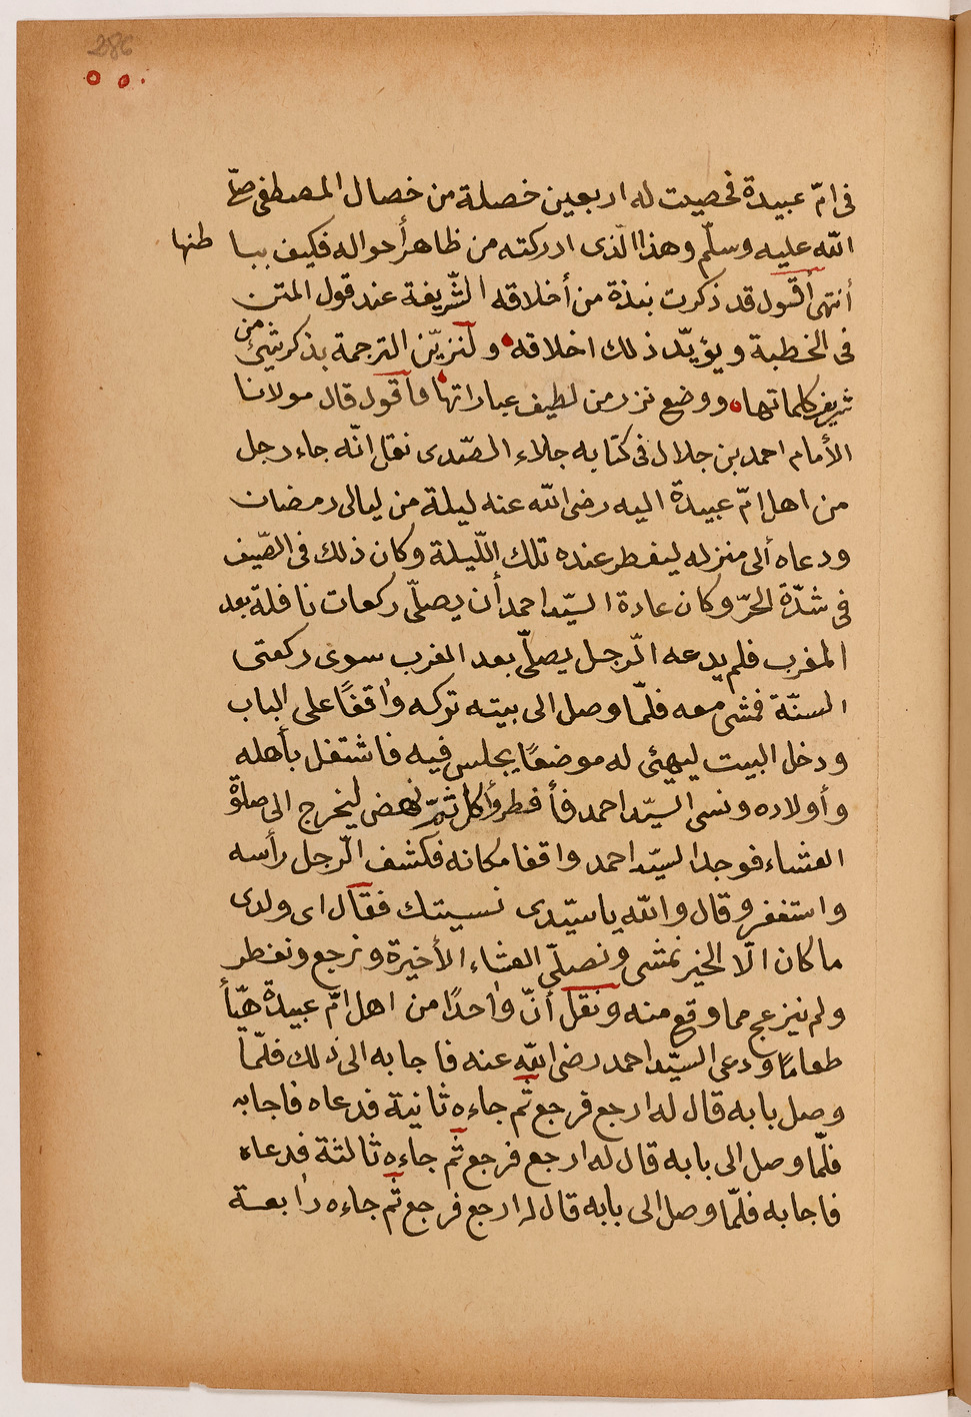 286
٥ ٥ ٠
فى امّ عبيدة فحصيت له اربعين خصلة من خصال المصطفى صلّى
الله عليه وسلّم وهذا الّذى ادركته من ظاهر أحواله فكيف ببا طنها
أنتهى أقول قد ذكرت نبذة من أخلاقه الشّريفة عند قول المتن
فى الخطبة ويؤيّد ذلك اخلاقه ولنزيّن الترجمة بذكر شئ من
شريف كلماتها ووضع نزر من لطيف عباراتها فأقول قال مولانا
الأمام احمد بن جلال فى كتابه جلاء الصّدى نقل انّه جاء رجل
من اهل امّ عبيدة اليه رضى الله عنه ليلة من ليالى رمضان
ودعاه ألى منزله ليفطر عنده تلك اللّيلة وكان ذلك فى الصّيف
فى شدّة الحرّ وكان عادة السيّد احمد أن يصلّى ركعات نافلة بعد
المغرب فلم يدعه الّرجل يصلّى بعد المغرب سوى ركعتى
السنّة فمشى معه فلمّا وصل الى بيته تركه واقفًا على الباب
ودخل البيت ليهيئ له موضعًا يجلس فيه فاشتغل بأهله
وأولاده ونسى السيّد احمد فأفطر وأكل ثمّ نهض ليخرج الى صلاة
العشاء فوجد السيّد احمد واقفا مكانه فكشف الّرجل رأسه
واستغفر وقال والله ياسيّدى نسيتك فقال اى ولدى
ماكان الّا الخير نمشى ونصلّى العشاء الأخيرة ونرجع ونفطر
ولم ينزعج مما وقع منه ونقل أنّ واحدًا من اهل امّ عبيدة هيّأ
طعامًا ودعى السيّد احمد رضى الله عنه فاجابه الى ذلك فلمّا
وصل بابه قال له ارجع فرجع ثم جاءه ثانية فدعاه فاجابه
فلمّا وصل الى بابه قال له ارجع فرجع ثم جاءه ثالثة فدعاه
فاجابه فلمّا وصل الى بابه قال له ارجع فرجع ثم جاءه رابعة